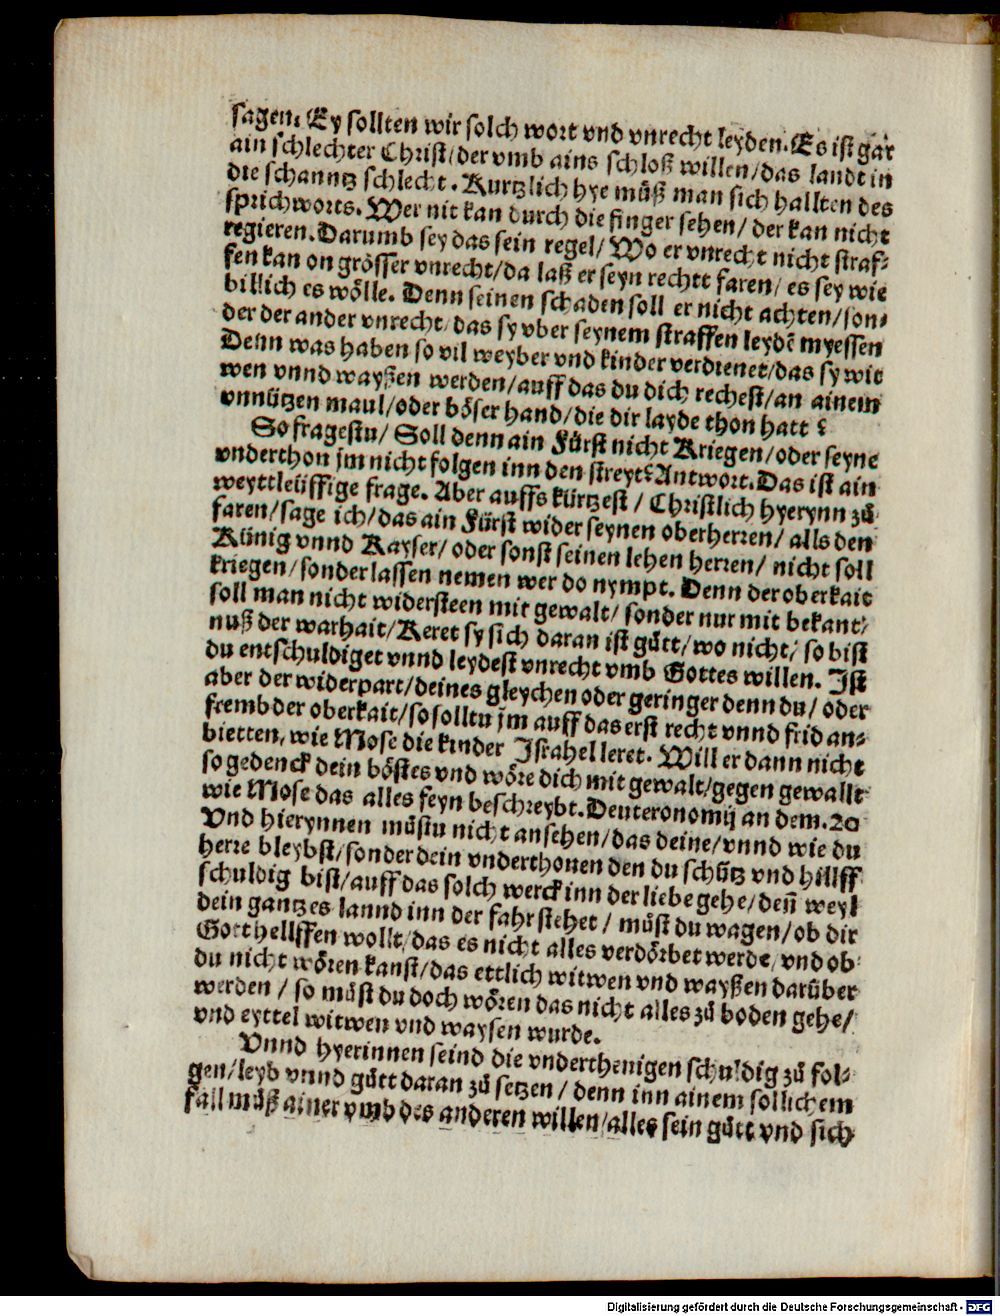 sagen. Ey sollten wir solch wort vnd vnrecht leyden. Es ist gar
ain schlechter Christ/ der vmb ains schloß willen/ das landt in
die schanntz schlecht. Kurtzlich hye můß man sich hallten des
sprichworts. Wer nit kan durch die finger sehen/ der kan nicht
regieren. Darumb sey das sein regel/ Wo er vnrecht nicht straf⸗
fen kan on grösser vnrecht/ da laß er seyn rechtt faren/ es sey wie
billich es wölle. Denn seinen schaden soll er nicht achten/ son⸗
der der ander vnrecht/ das sy vber seynem straffen leydē myessen
Denn was haben so vil weyber vnd kinder verdienet/ das sy wit
wen vnnd wayßen werden/ auff das du dich rechest/ an ainem
vnnützen maul/ oder böser hand/ die dir layde thon hatt?
So fragestu/ Soll denn ain Fürst nicht Kriegen/ oder seyne
vnderthon jm nicht folgen inn den streyt? Antwort. Das ist ain
weyttleüffige frage. Aber auffs kürtzest/ Christlich hyerynn zů
faren/ sage ich/ das ain Fürst wider seynen oberherren/ alls den
Künig vnnd Kayser/ oder sonst seinen lehen herren/ nicht soll
kriegen/ sonder lassen nemen wer do nympt. Denn der oberkait
soll man nicht widersteen mit gewalt/ sonder nur mit bekant⸗
nuß der warhait/ Keret sy sich daran ist gůtt/ wo nicht/ so bist
du entschuldiget vnnd leydest vnrecht vmb Gottes willen. Ist
aber der widerpart/ deines gleychen oder geringer denn du/ oder
frembder oberkait/ so solltu jm auff das erst recht vnnd frid an⸗
bietten, wie Mose die kinder Israhel leret. Will er dann nicht
so gedenck dein böstes vnd wöre dich mit gewalt/ gegen gewallt
wie Mose das alles feyn beschreybt. Deuteronomij an dem. 20
Vnd hierynnen můstu nicht ansehen/ das deine/ vnnd wie du
herre bleybst/ sonder dein vnderthonen den du schůtz vnd hillff
schuldig bist/ auff das solch werck inn der liebe gehe/ deñ weyl
dein gantzes lannd inn der fahr stehet/ můst du wagen/ ob dir
Gott hellffen wollt/ das es nicht alles verdörbet werde/ vnd ob
du nicht wören kanst/ das ettlich witwen vnd wayßen darüber
werden/ so můst du doch wören das nicht alles zů boden gehe/
vnd eyttel witwen vnd waysen wurde.
Vnnd hyerinnen seind die vnderthenigen schuldig zů fol⸗
gen/ leyb vnnd gůtt daran zů setzen/ denn inn ainem sollichem
fall můß ainer vmb des anderen willen/ alles sein gůtt vnd sich
Digitalisierung gefördert durch die Deutsche Forschungsgemeinschaft - DFG